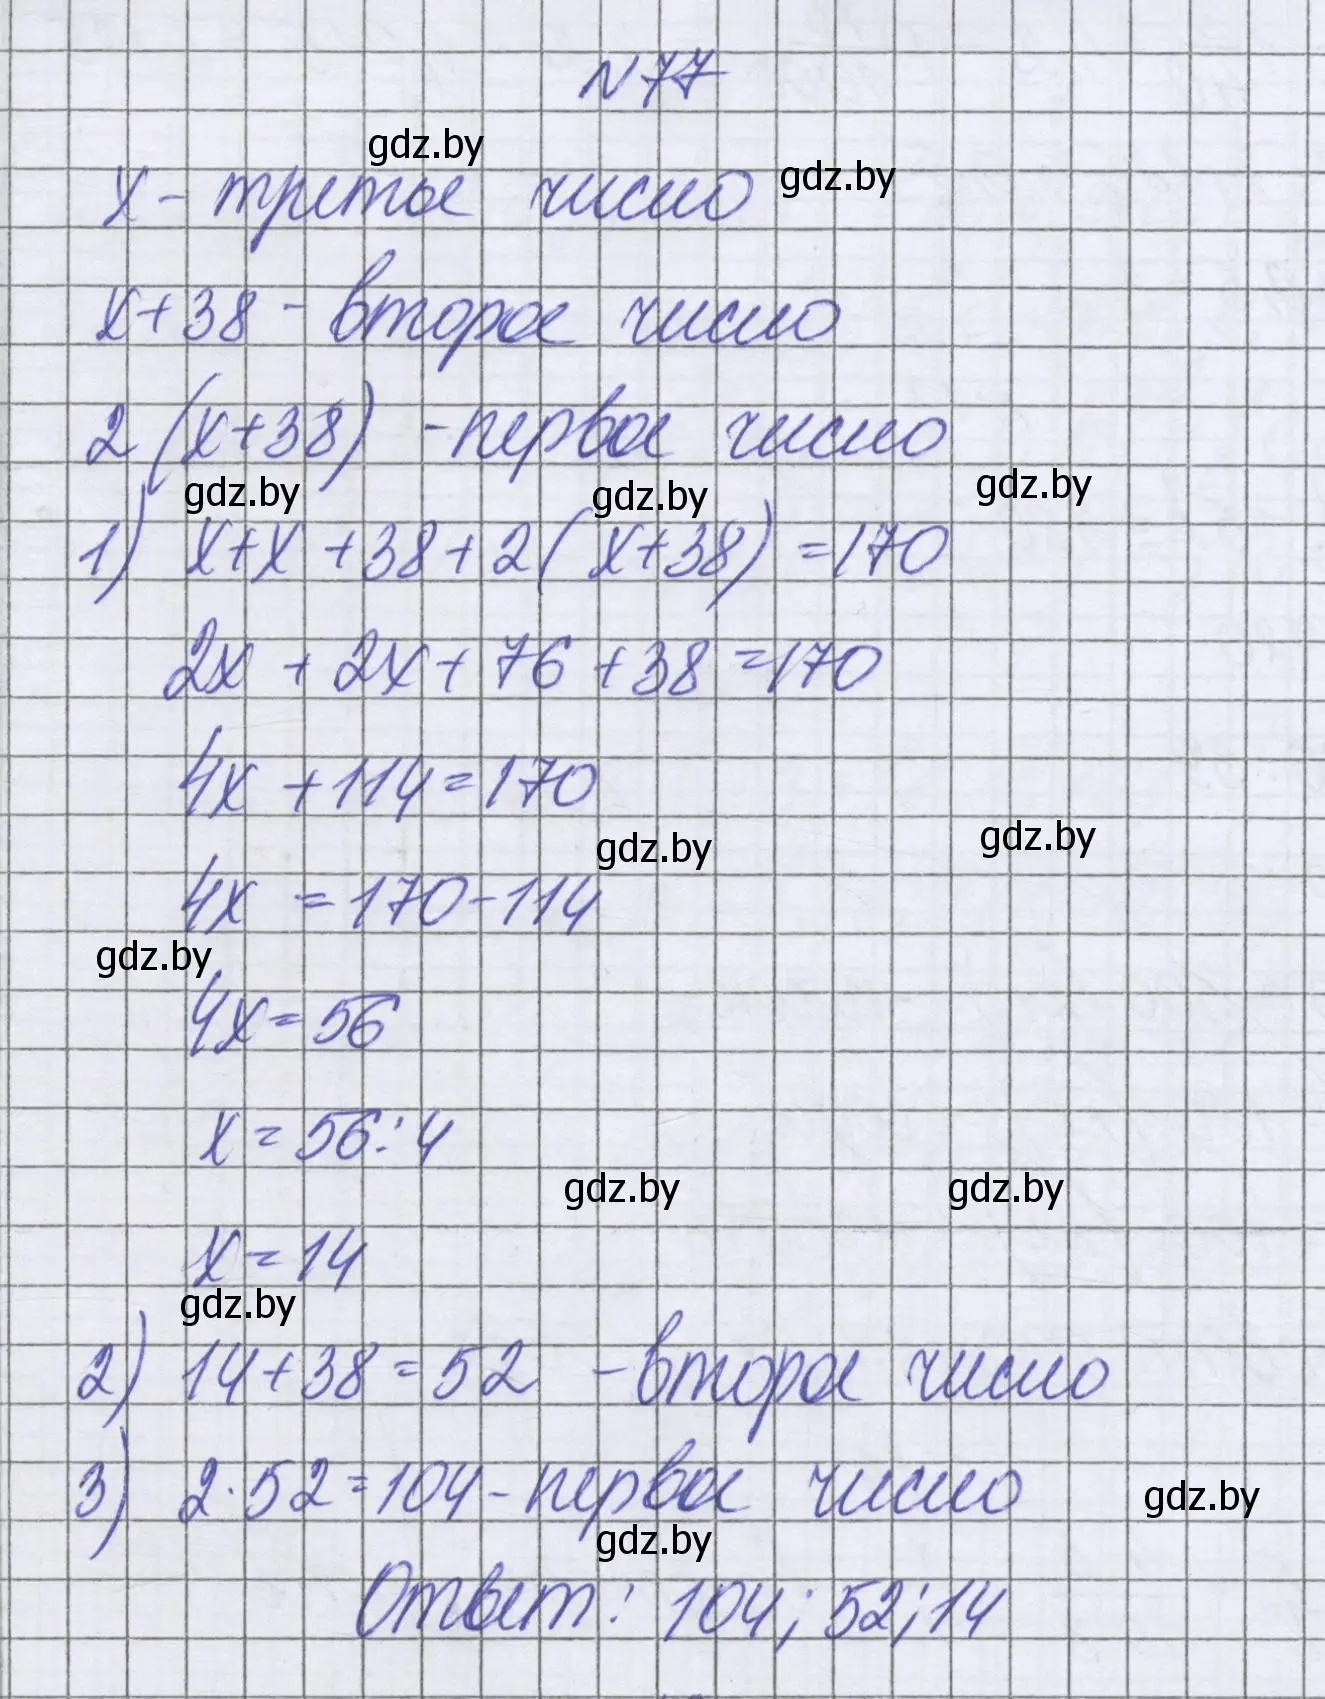 №77
gdz.by
x - третье число
gdz.by
x+38 - второе число
2(x+38) - первое число
gdz.by
gdz.by
gdz.by
1) x+x+38+2(x+38)=170
2x+2x+76+38=170
4x+114=170
gdz.by
gdz.by
4x=170-114
gdz.by
4x=56
x=56:4
gdz.by
gdz.by
x=14
gdz.by
2) 14+38=52 - второе число
3) 2·52=104 - первое число
gdz.by
gdz.by
Ответ: 104; 52; 14